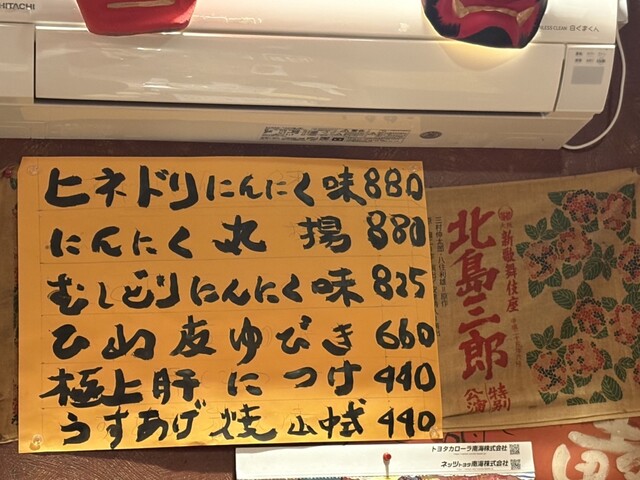 HITACHI
白くまくん
ヒネドリにんにく味 880
にんにく丸揚 880
むしどりにんにく味 825
ひめ皮ゆびき 660
極上肝につけ 440
うすあげ焼 440
新歌舞伎座
北島三郎
特別
公演
トヨタカローラ南海株式会社
ネッツトヨタ南海株式会社